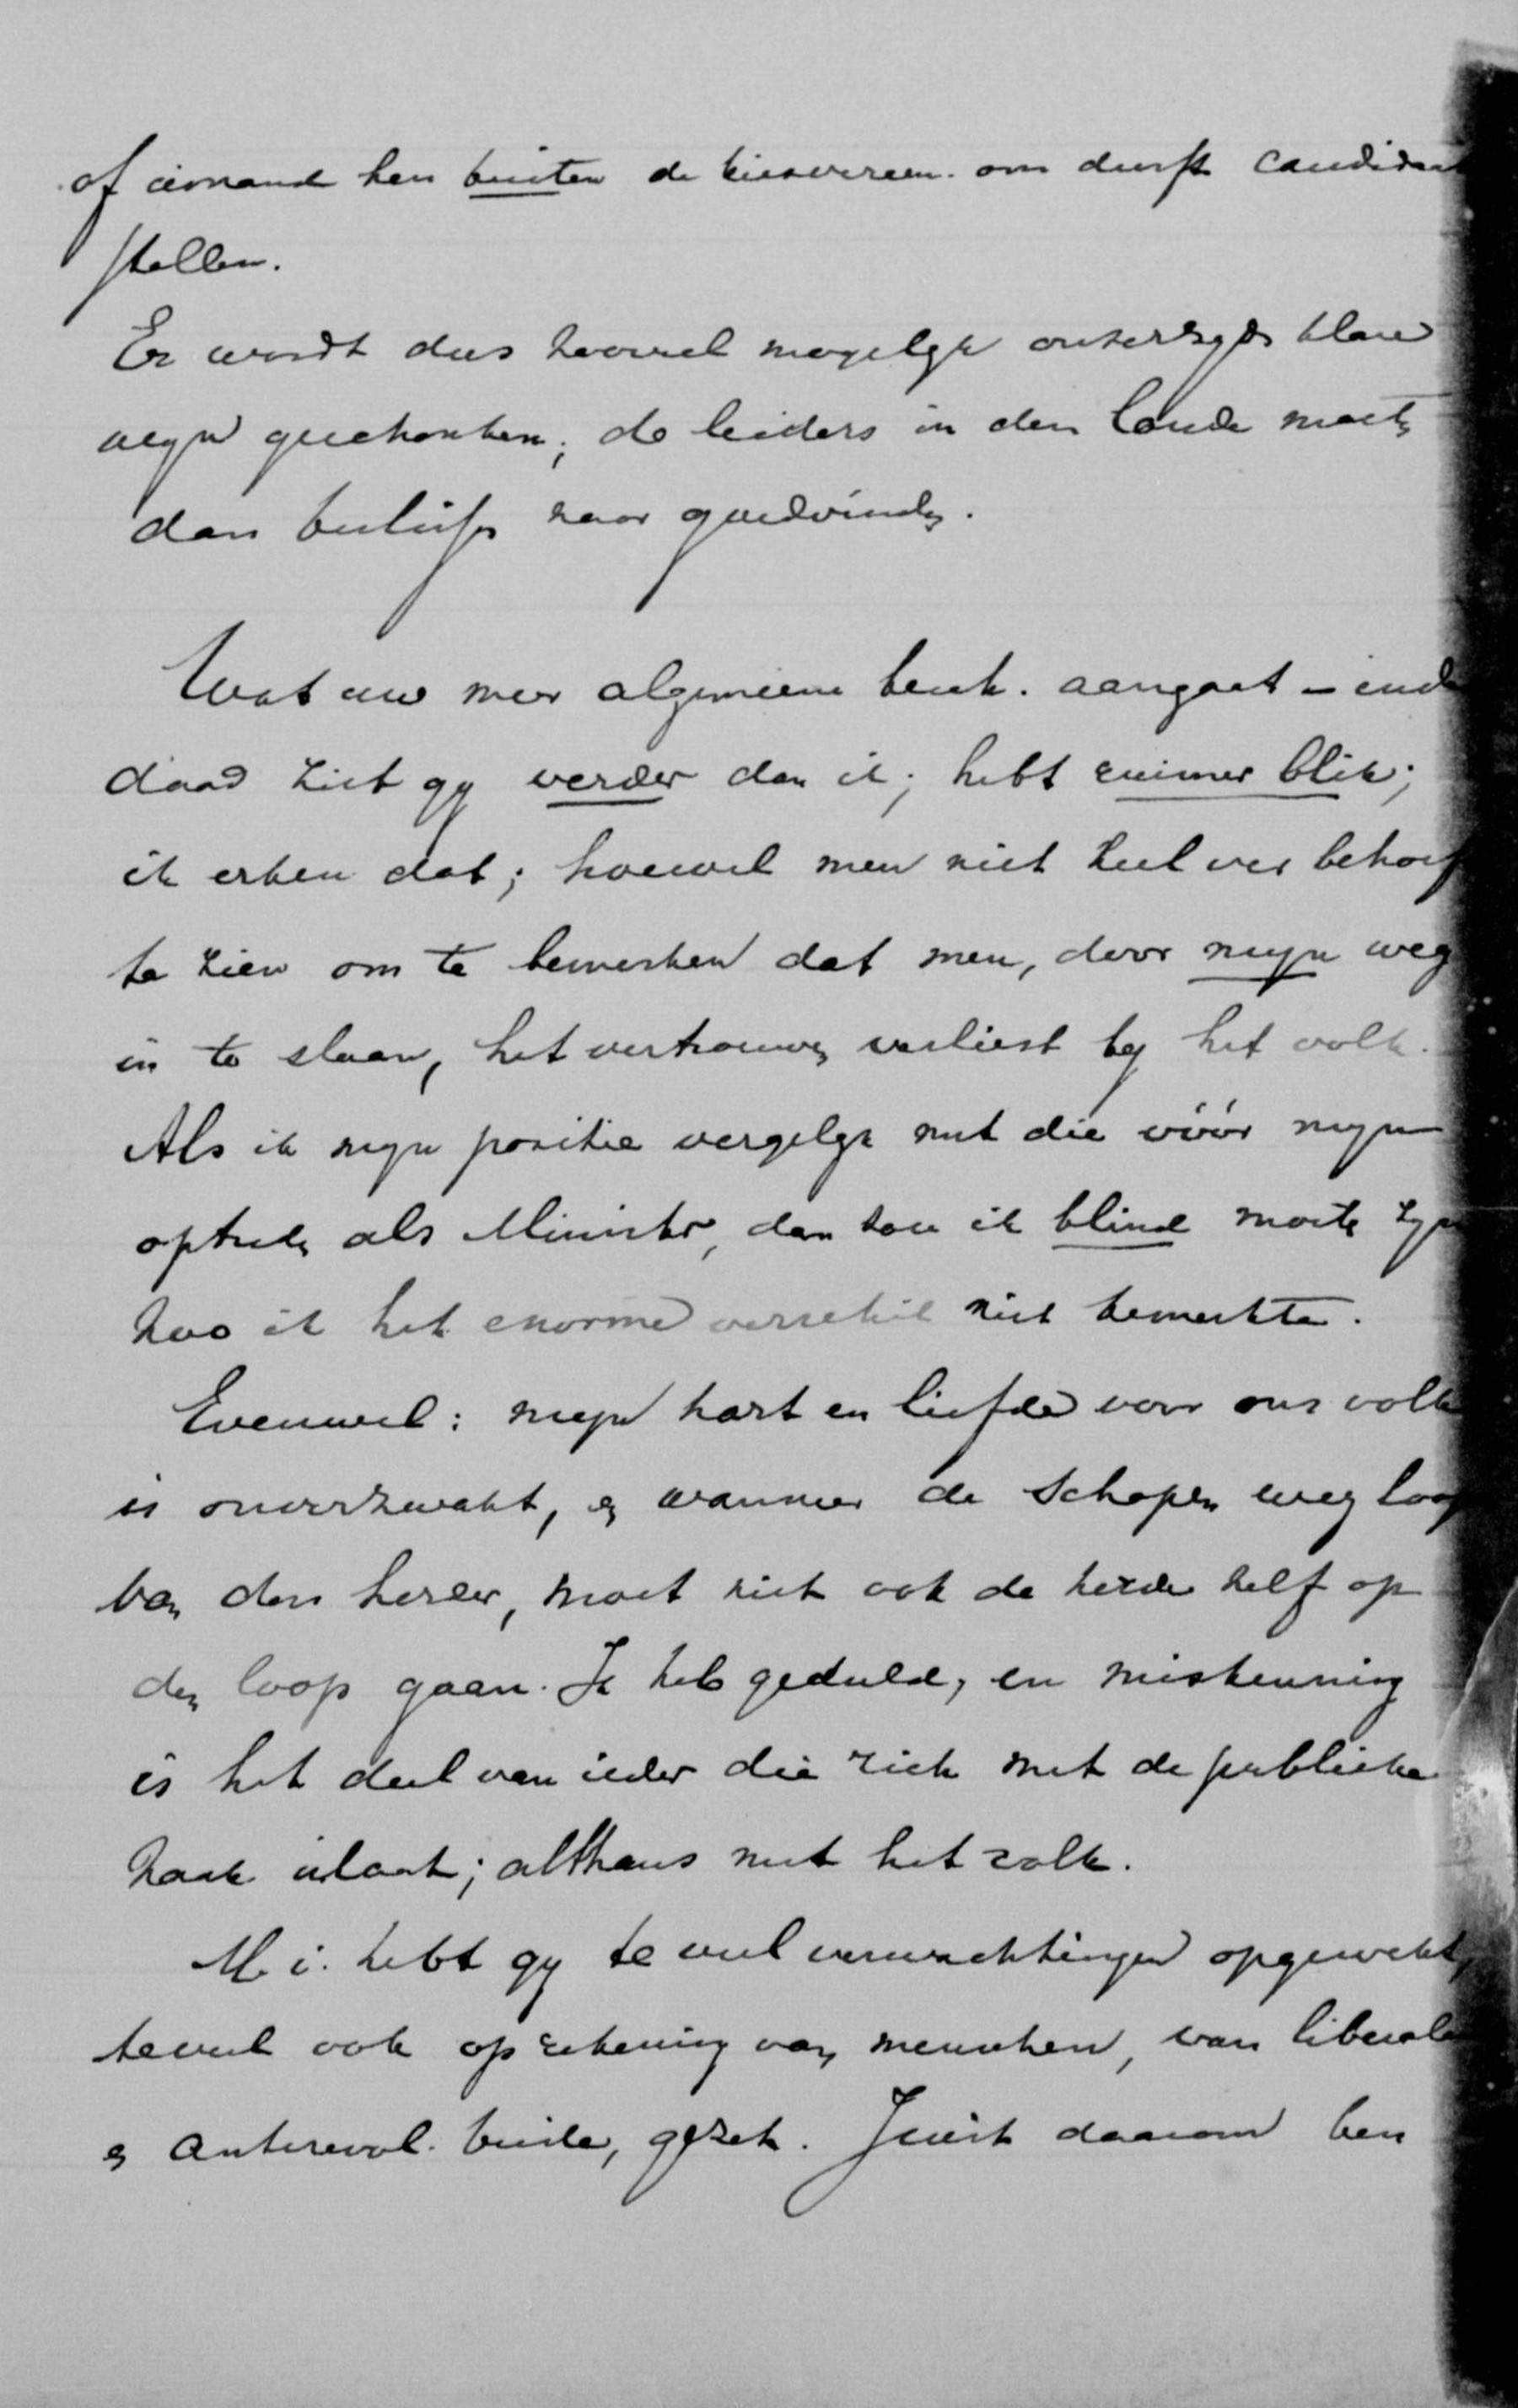 of iemand hen buiten de kiesvereen. om durft candidaat
stellen.
Er wordt dus zooveel mogelijk onzerzijds klare
wijn geschonken; de leiders in den lande moeten
dan beslissen naar goedvinden.
Wat uw meer algemeene beschouw. aangaat – inder
daad ziet gij verder dan ik; hebt ruimer blik;
ik erken dat; hoewel men niet heel ver behoef
te zien om te bemerken dat men, door mijn weg
in te slaan, het vertrouwen verliest bij het volk.
Als ik mijn positie vergelijk met die vóór mijn
optreden als Minister, dan zou ik blind moeten zijn
zoo ik het enorme verschil niet bemerkte.
Evenwel: mijn hart en liefde voor ons volk
is onverzwakt, en wanneer de schapen weg loop
van den herder, moet niet ook de herder zelf op
den loop gaan. Ik heb geduld, en miskenning
is het deel van ieder die zich met de publieke
zaak inlaat; althans met het volk.
M. i. hebt gij te veel verwachtingen opgewekt,
te veel ook op rekening van menschen, van liberale
en antirevol. beide, gezet. Juist daarom ben